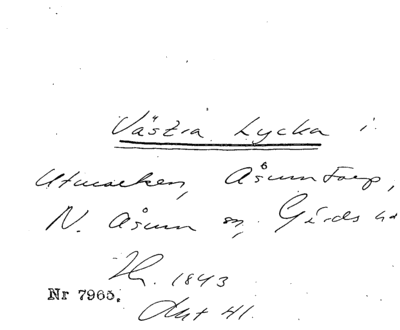 Västra Lycka i
Utmarken, Åsumtorp,
N. Åsum sn, Gärds hd
Hs. 1843
Nr 7965.
Akt 41.